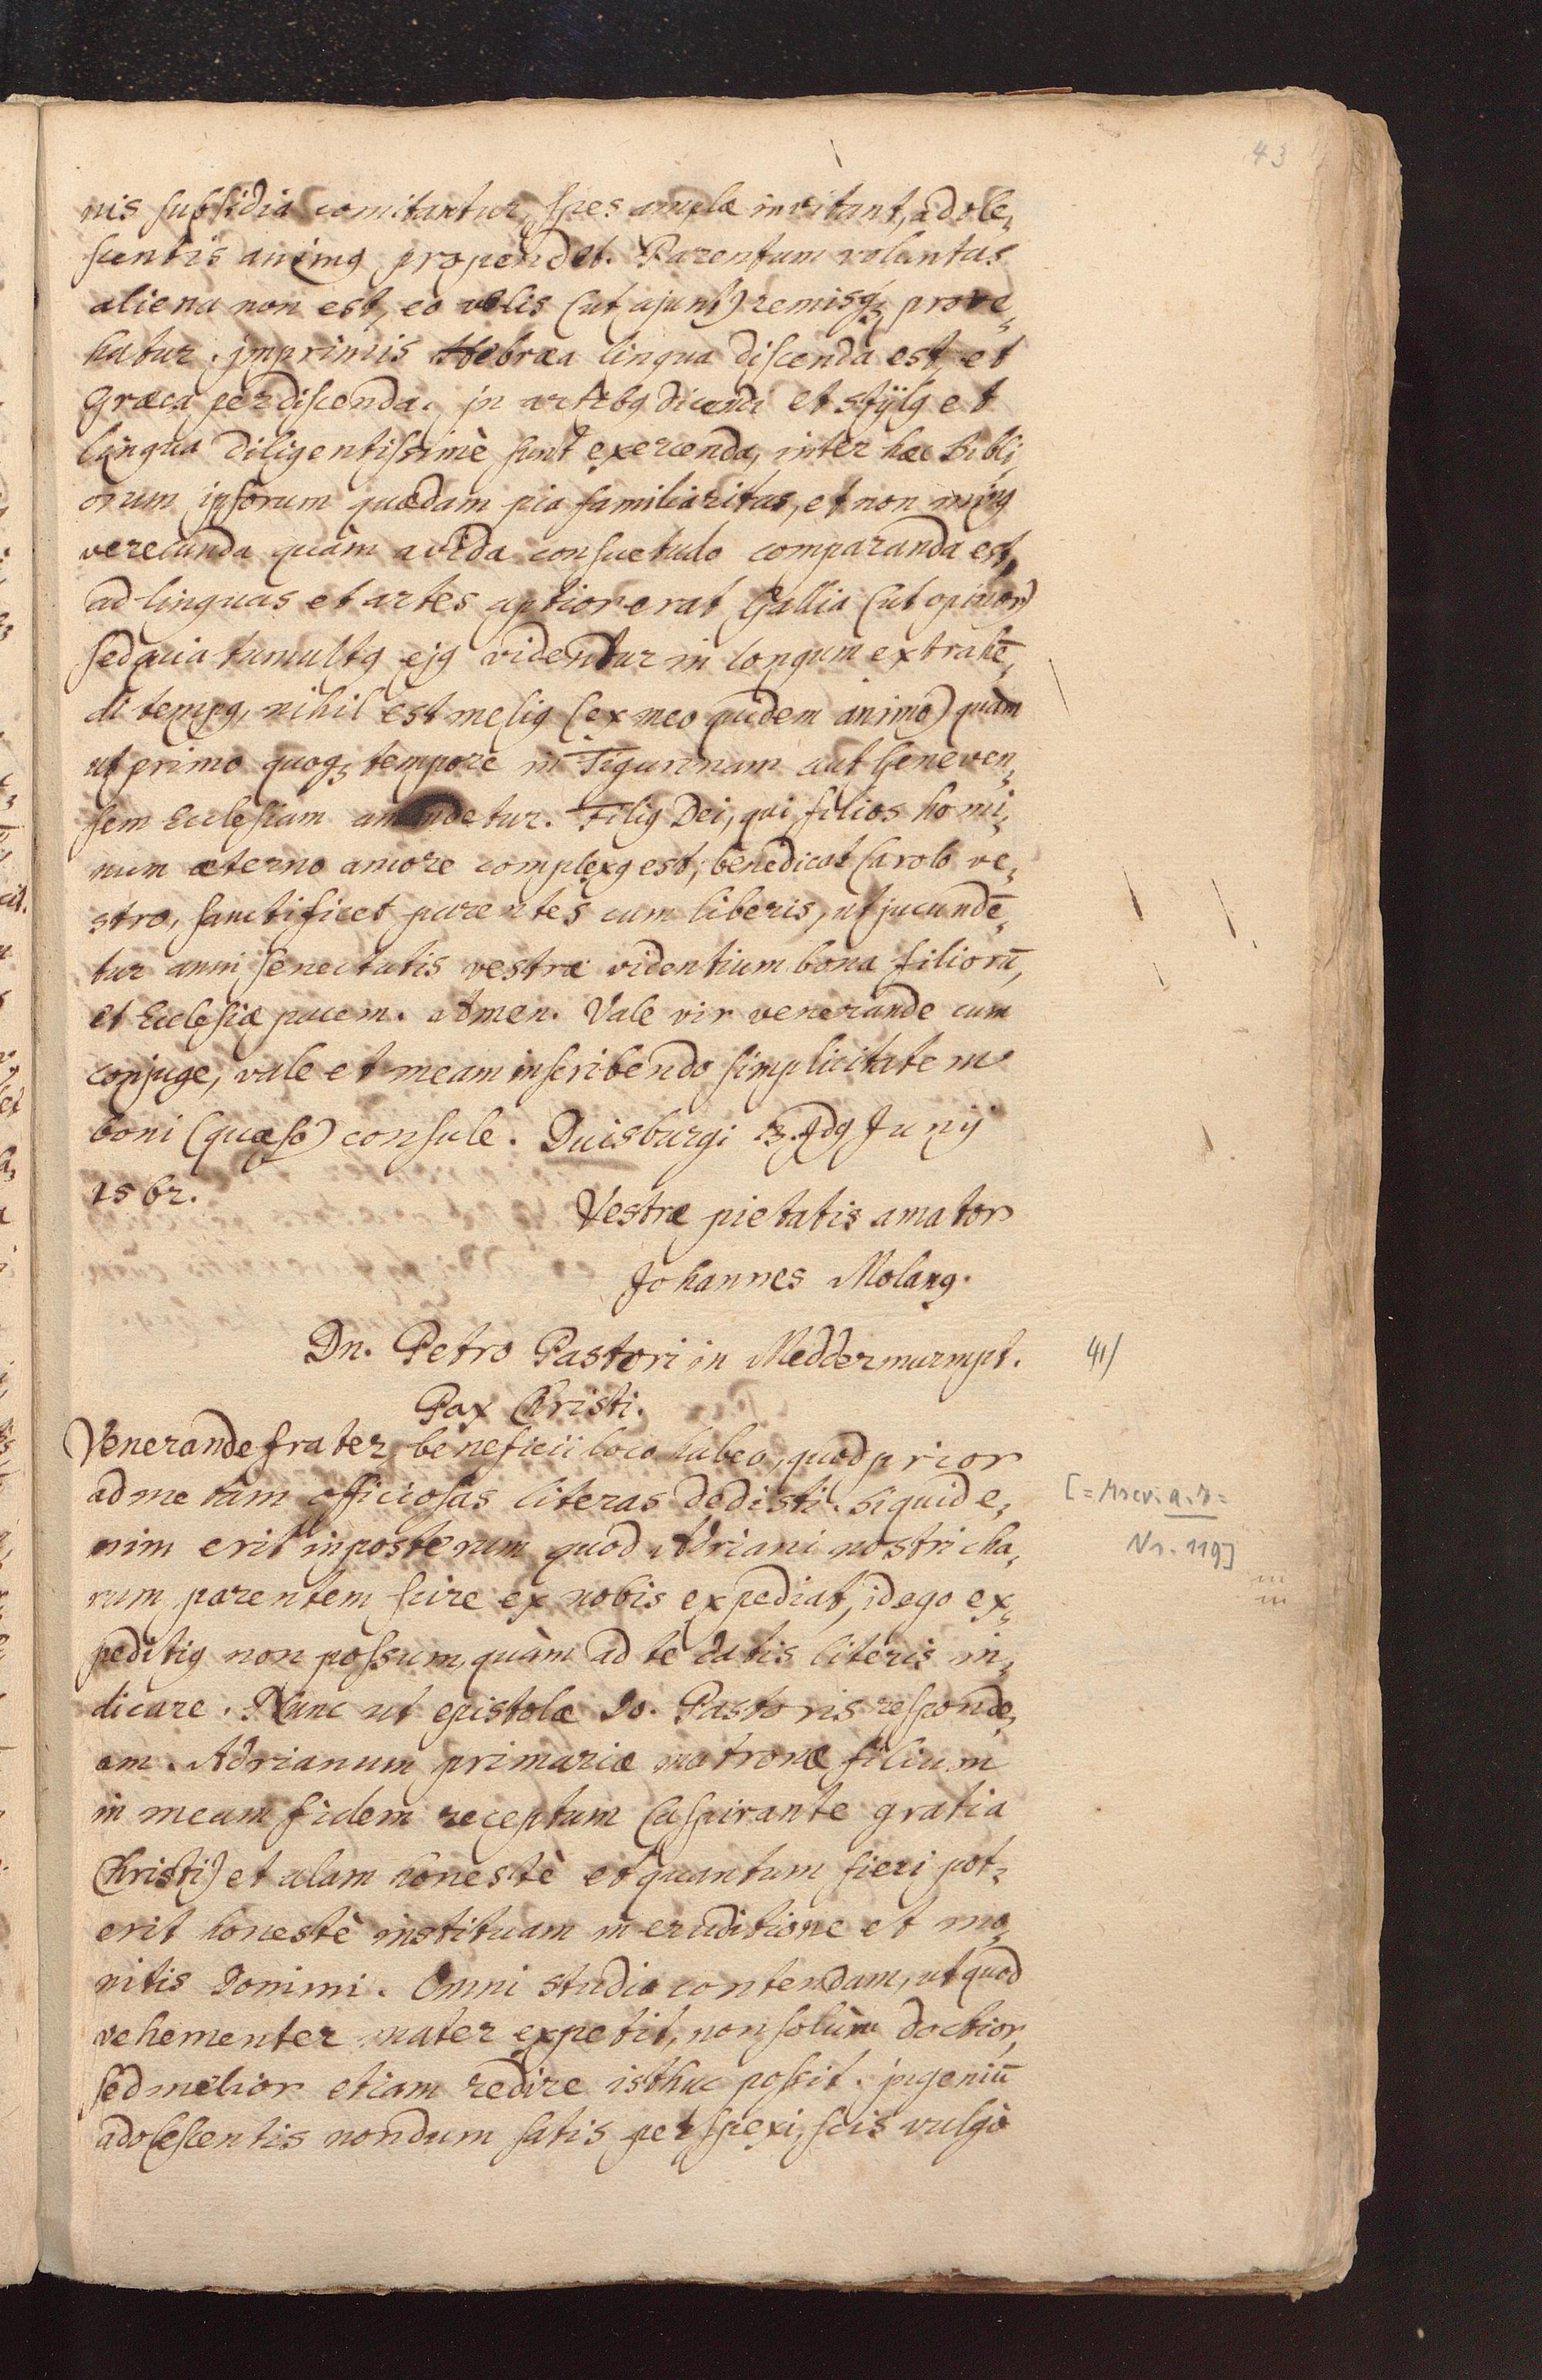 43
nis subsidia comitantur, spes amplæ invitant, adole¸
scentis animꝰ propendet. Parentum voluntas
aliena non est, eo velis (ut ajunt) remisq́ꝫ prove¸
hatur. jmprimis Hebræa lingua discenda est, et
Græca perdiscenda. jn artibꝰ dicendi et stÿlꝰ et
lingua diligentissimè sunt exercenda, inter hæc Bibli¸
orum ipsorum quædam pia familiaritas, et non minꝰ
verecunda quàm avida consuetudo comparanda est,
ad linguas et artes aptior erat Gallia (ut opinor)
sed quia tumultꝰ ejꝰ videntur in longum extrahē¸
di tempꝰ, nihil est meliꝰ (ex meo quidem animo) quàm
ut primo quoqꝫ tempore in Tigurinam aut Geneven¸
sem Ecclesiam amandetur. Filiꝰ Dei, qui filios homi¸
num æterno amore complexꝰ est, benedicat Carolo ve¸
stro, sanctificet parentes cum liberis, ut jucundē¸
tur anni senectutis vestræ videntium bona filiorū,
et Ecclesiæ pacem. Amen. Vale vir venerande cum
conjuge, vale et meam inscribendo simplicitatem
boni (quæso) consule. Duisburgi 3. Jdꝰ Junij
1562.
Vestræ pietatis amator
Johannes Molanꝰ.
Dn. Petro Pastori in Meddermurmpt.
41/
Pax Christi.
Venerande frater, beneficii loco habeo, quod prior
ad me tam officiosas literas dedisti. Siquid e¸
nim erit inposterum quod Adriani nostri cha¸
rum parentem scire ex nobis expediat, id ego ex¸
peditiꝰ non possum, quàm ad te datis literis in¸
dicare. Nunc ut epistolæ Do. Pastoris responde¸
am. Adrianum primariæ matronæ filium
in meam fidem receptum (aspirante gratia
Christi) et alam honestè et quantum fieri pot¸
erit honestè instituam in eruditione et mo¸
nitis Domini. Omni studio contendam, ut quod
vehementer mater expetit, non solùm doctior,
sed melior etiam redire isthuc possit. jngeniū
adolescentis nondum satis perspexi, scis vulgò
Nr. 119]